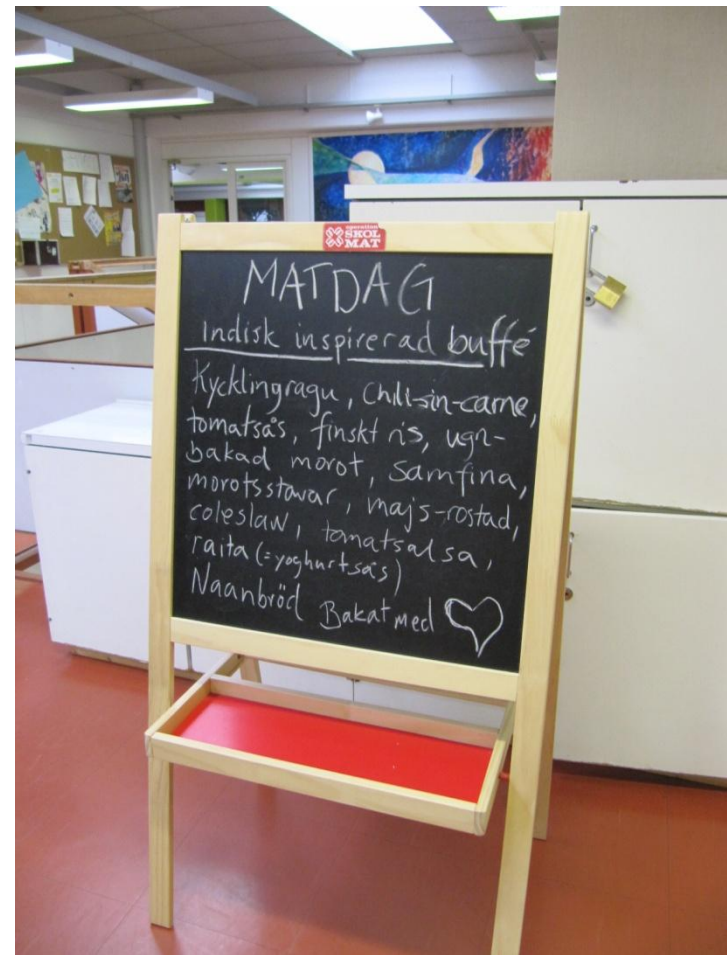 operation
SKOL
MAT
MATDAG
Indisk inspirerad buffé
Kycklingragu, Chili-sin-carne,
tomatsås, finskt ris, ugn-
bakad morot, Samfina,
morotsstavar, majs-rostad,
coleslaw, tomatsalsa,
raita (=yoghurtsås)
Naanbröd Bakat med